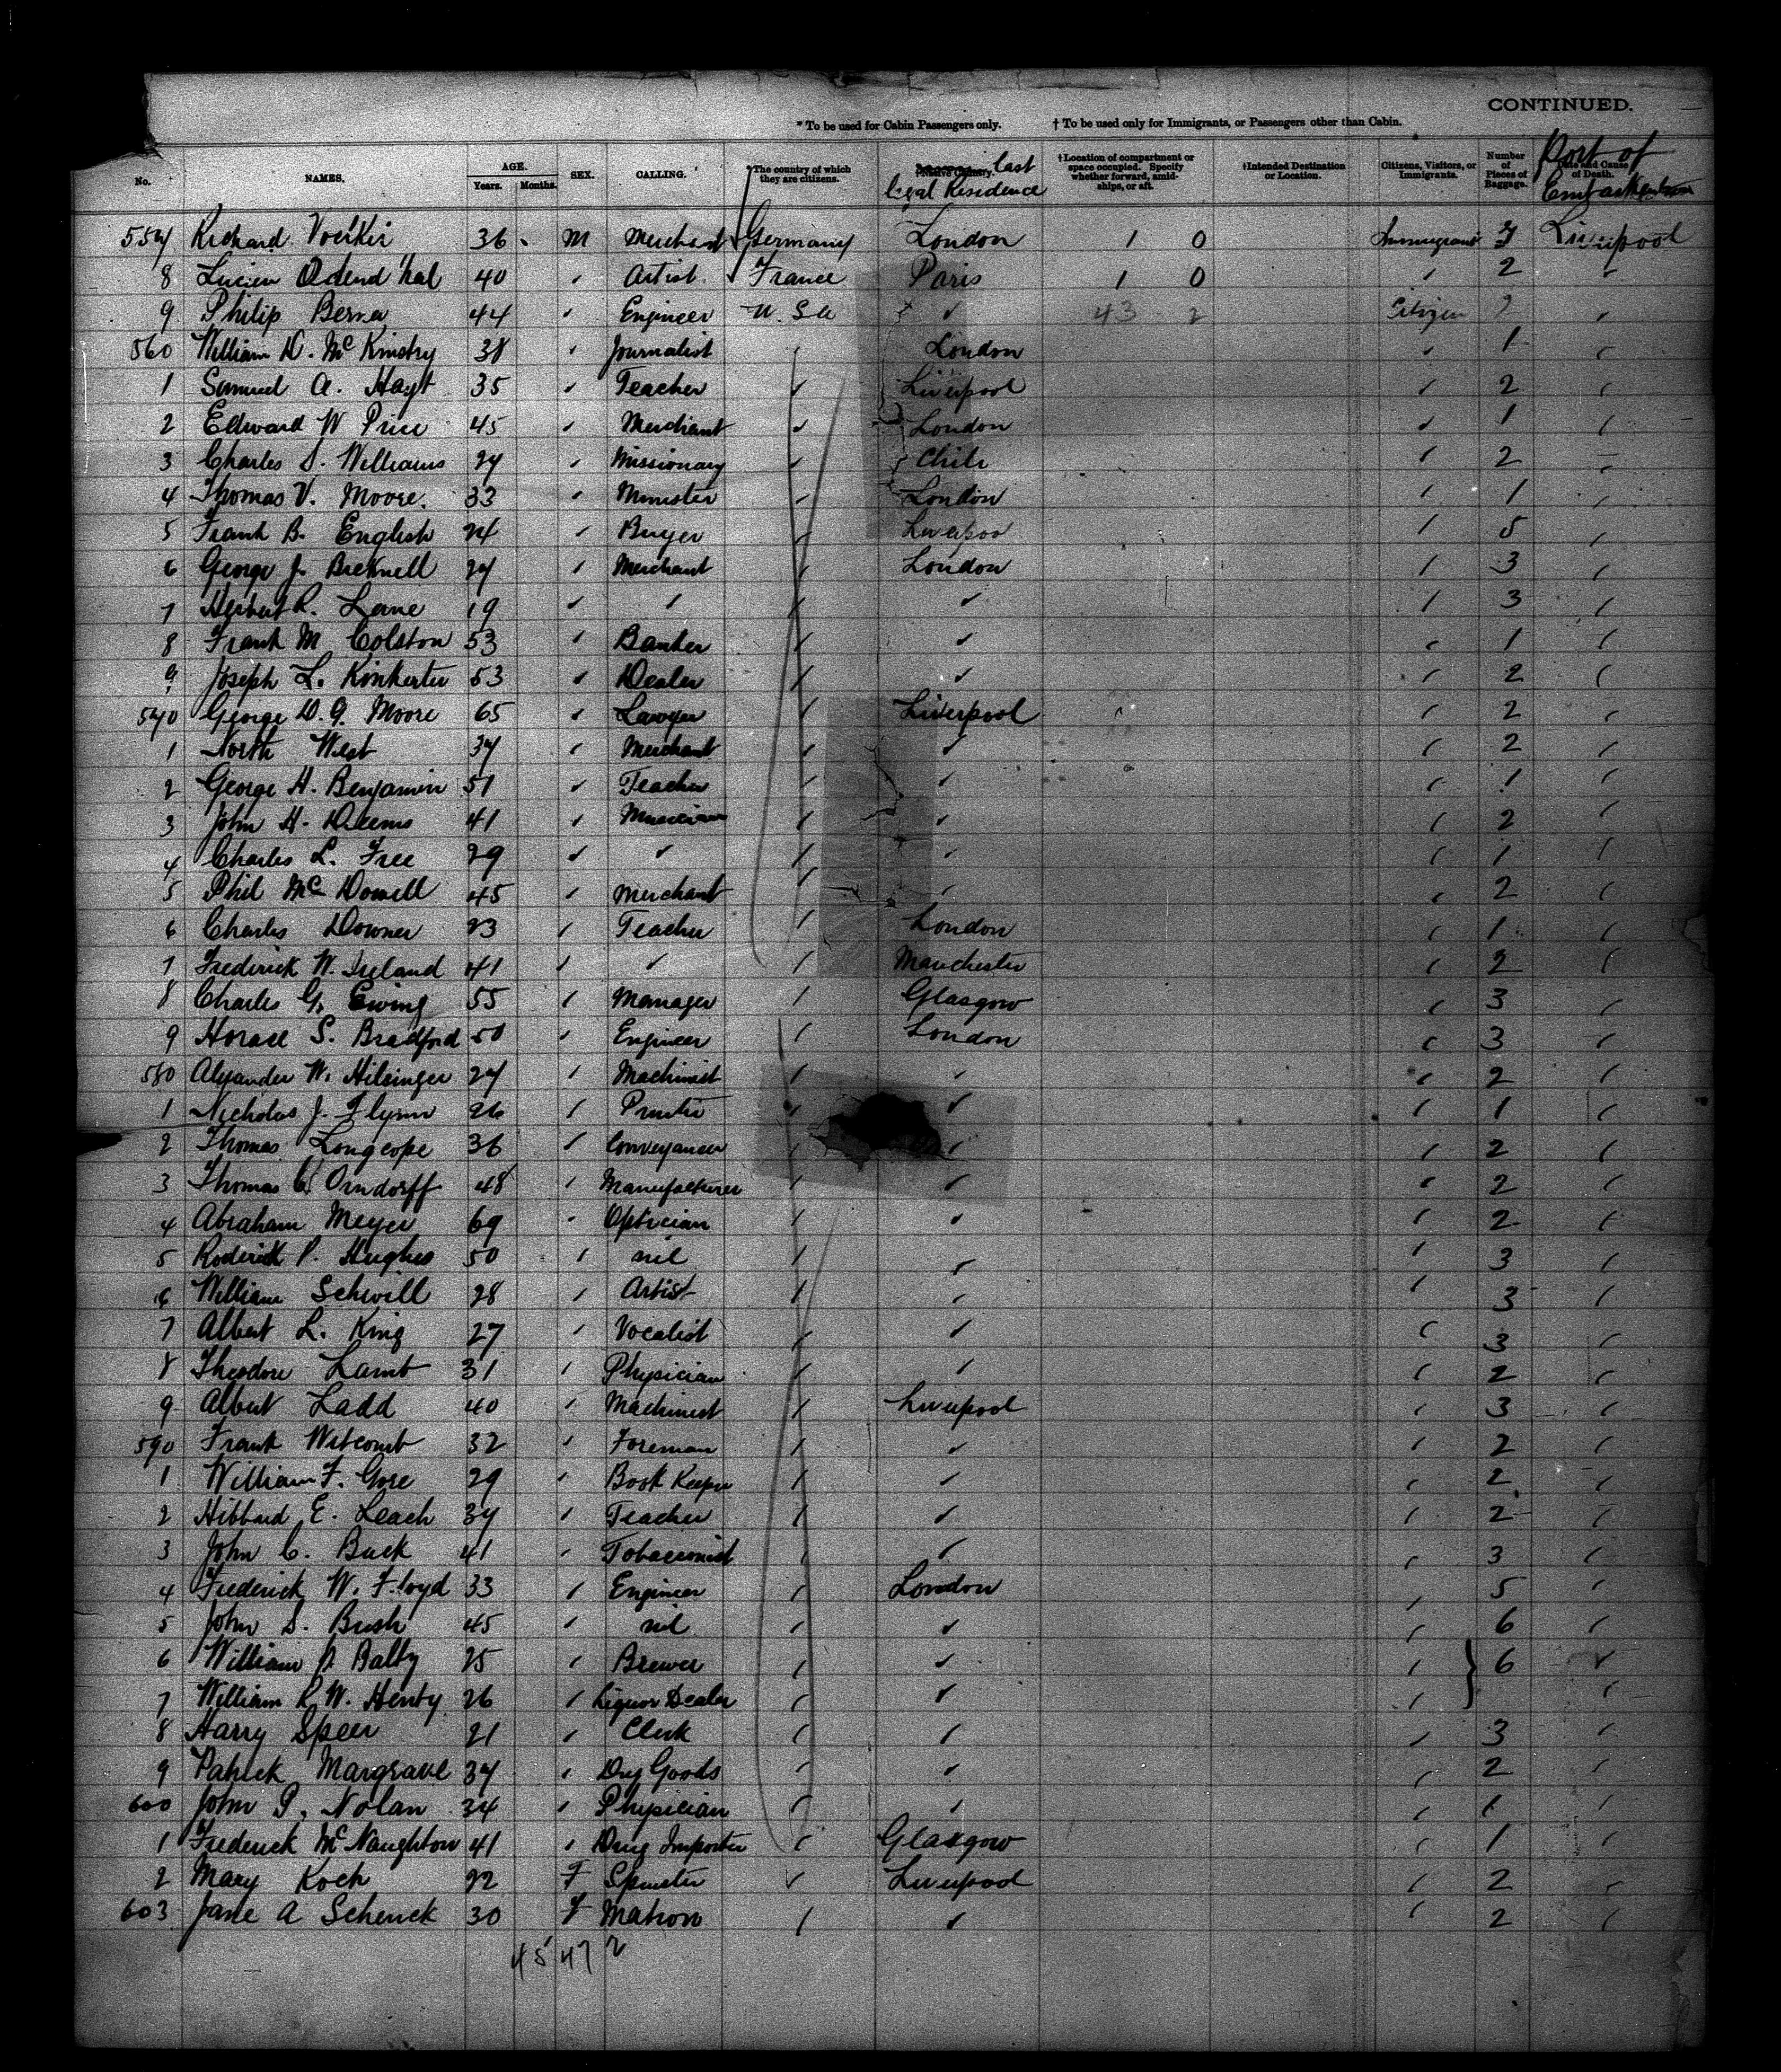 CONTINUED.
* To be used for Cabin Passengers only. † To be used only for Immigrants, or Passengers other than Cabin.
No. NAMES. AGE. Years. Months. SEX. CALLING. *The country of which they are citizens. last legal Residence †Location of compartment or space occupied. Specify whether forward, amidships, or aft. †Intended Destination or Location. Citizens, Visitors, or Immigrants. Number of Pieces of Baggage. Date and Cause of Death. Port of Embarkation
557 Richard 36 M Merchant Germany London 1 0 Immigrant 3 Liverpool
8 Lucien Odend'hal 40 " Artist France Paris 1 0 " 2 "
9 Philip 44 " Engineer U.S.A " 43 2 Citizen 2 "
560 William D. McKinstry 38 " Journalist " London " 1 "
1 Samuel A. Hoyt 35 " Teacher " Liverpool " 2 "
2 Edward W Price 45 " Merchant " London " 1 "
3 Charles S. Williams 27 " Missionary " Chili " 2 "
4 Thomas V. Moore. 33 " Minister " London " 1 "
5 Frank B. English 24 " Buyer " Liverpool " 5 "
6 George J. Bicknell 27 " Merchant " London " 3 "
7 Herbert R. Lane 19 " " " " " 3 "
8 Frank M Colston 53 " Banker " " " 1 "
9 Joseph L. 53 " Dealer " " " 2 "
570 George D. G. Moore 65 " Lawyer " Liverpool " 2 "
1 North West 37 " Merchant " " " 2 "
2 George H. Benjamin 51 " Teacher " " " 1 "
3 John H. Deems 41 " Musician " " " 2 "
4 Charles L. Free 29 " " " " " 1 "
5 Phil McDowell 45 " Merchant " " " 2 "
6 Charles Downer 23 " Teacher " London " 1 "
7 Frederick W. Ireland 41 " " " Manchester " 2 "
8 Charles G. Ewing 55 " Manager " Glasgow " 3 "
9 Horace S. Bradford 50 " Engineer " London " 3 "
580 Alexander W. Hilsinger 27 " Machinist " " " 2 "
1 Nicholas J. Flynn 26 " Printer " " " 1 "
2 Thomas Longcope 36 " Conveyancer " " " 2 "
3 Thomas C. Orndorff 48 " Manufacturer " " " 2 "
4 Abraham Meyer 69 " Optician " " " 2 "
5 Roderick P. Hughes 50 " nil " " " 3 "
6 William Schwill 28 " Artist " " " 3 "
7 Albert L. King 27 " Vocalist " " " 3 "
8 Theodore Lamb 31 " Physician " " " 2 "
9 Albert Ladd 40 " Machinist " Liverpool " 3 "
590 Frank Witcomb 32 " Foreman " " " 2 "
1 William F. Gore 29 " Book Keeper " " " 2 "
2 Hibbard E. Leach 37 " Teacher " " " 2 "
3 John C. Buck 41 " Tobacconist " " " 3 "
4 Frederick W. Floyd 33 " Engineer " London " 5 "
5 John S. Bush 45 " nil " " " 6 "
6 William Balby 25 " Brewer " " " } 6 "
7 William R W. Henty 26 " Liquor Dealer " " " "
8 Harry Speer 21 " Clerk " " " 3 "
9 Patrick Margrave 37 " Dry Goods " " " 2 "
600 John P. Nolan 34 " Physician " " " 1 "
1 Frederick McNaughton 41 " Drug Importer " Glasgow " 1 "
2 Mary Koch 22 F Spinster " Liverpool " 2 "
603 Jane A Schenck 30 F Matron " " " 2 "
45 47 2